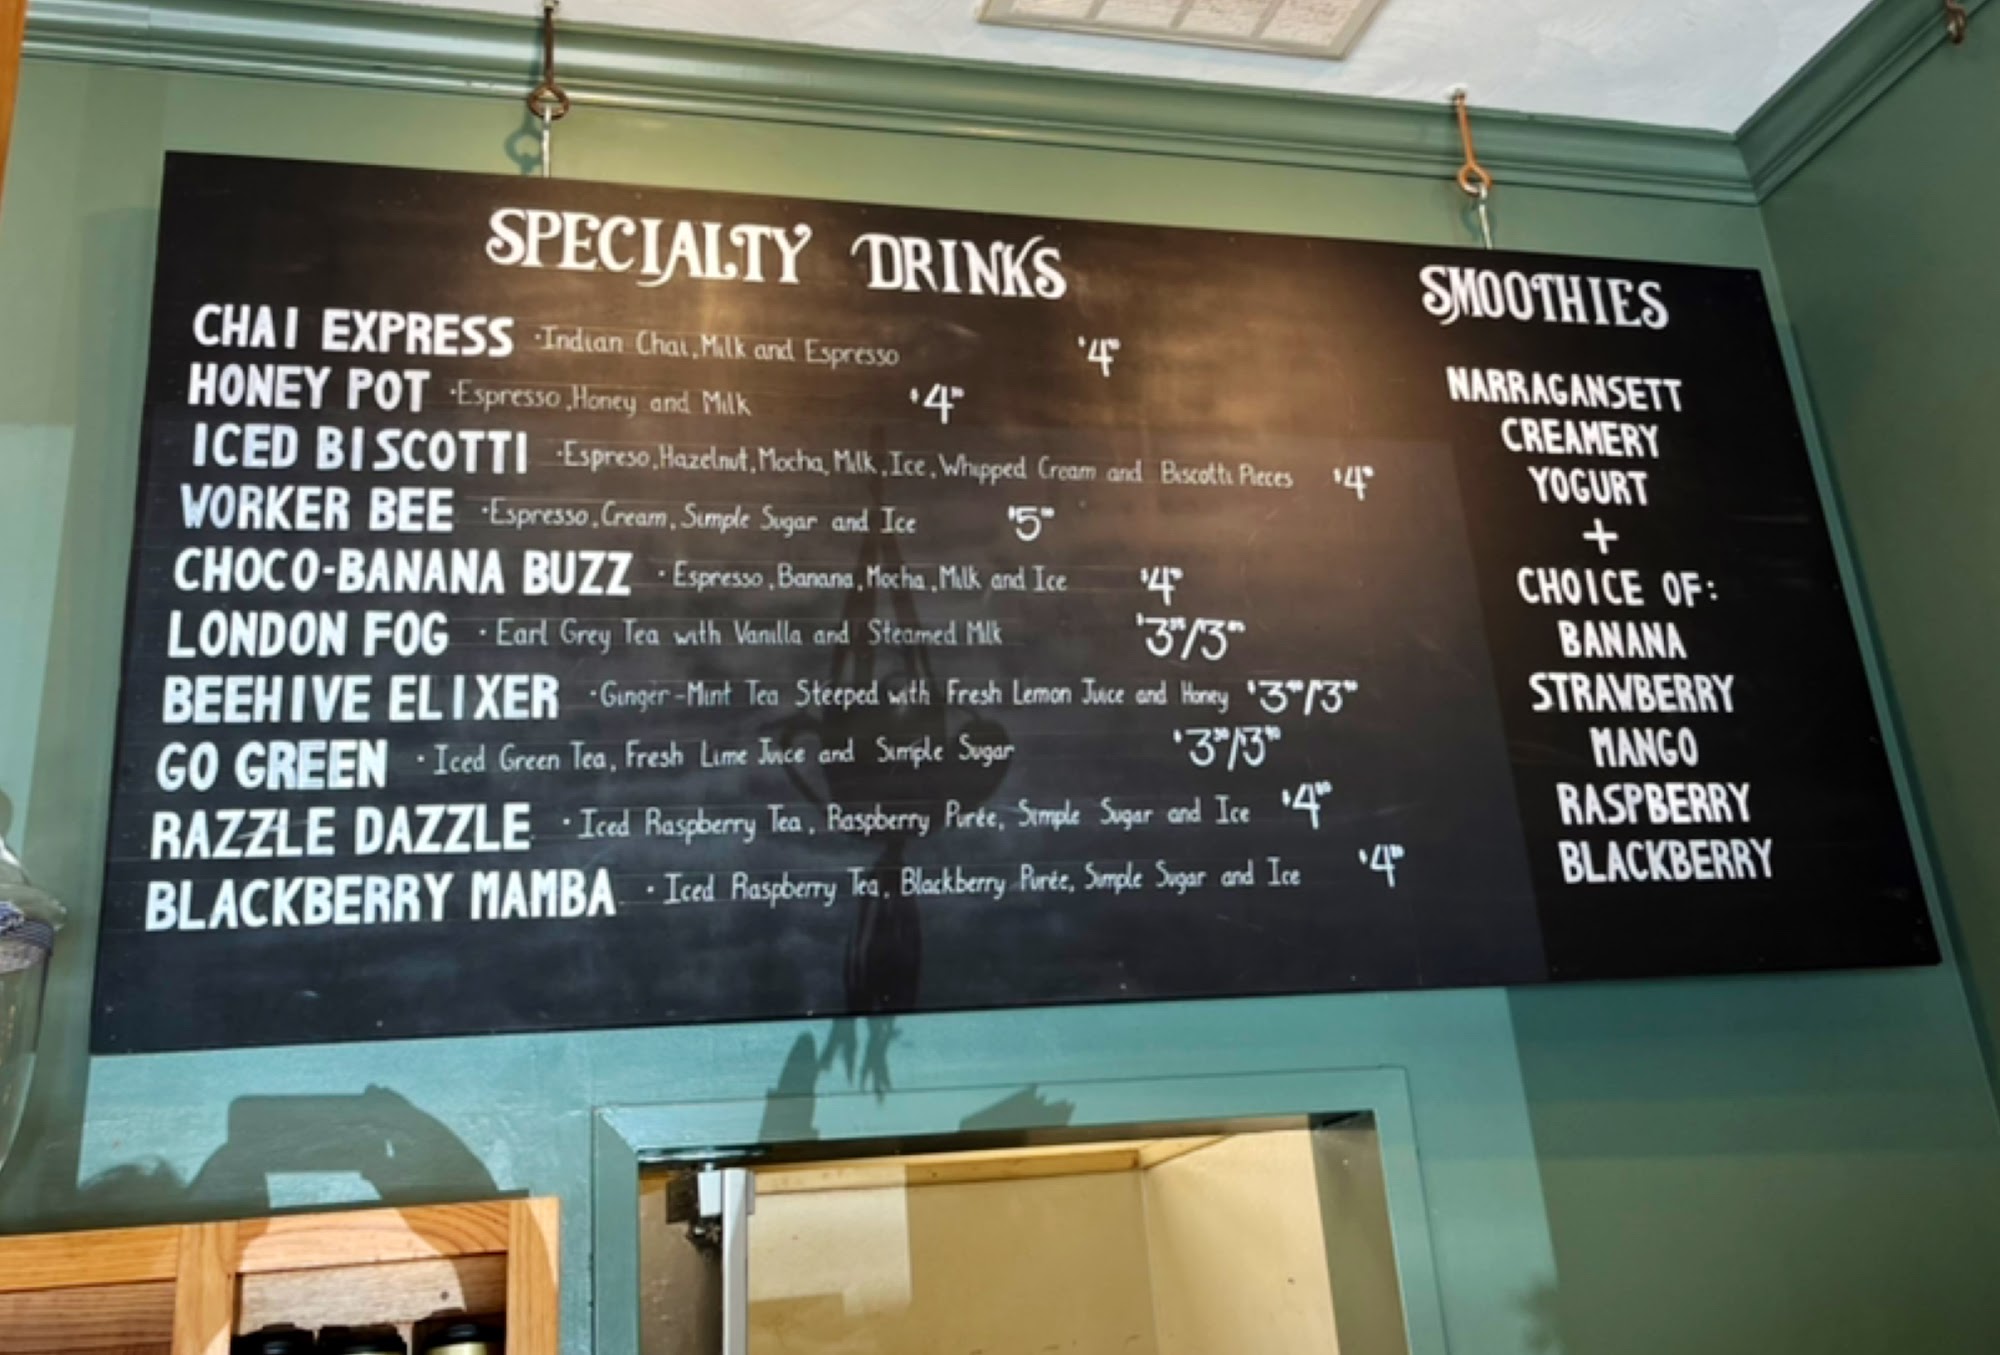 SPECIALTY DRINKS
CHAI EXPRESS ·Indian Chai, Milk and Espresso $4
HONEY POT ·Espresso, Honey and Milk $4
ICED BISCOTTI ·Espreso, Hazelnut, Mocha, Milk, Ice, Whipped Cream and Biscotti Pieces $4
WORKER BEE ·Espresso, Cream, Simple Sugar and Ice $5
CHOCO-BANANA BUZZ ·Espresso, Banana, Mocha, Milk and Ice $4
LONDON FOG ·Earl Grey Tea with Vanilla and Steamed Milk $3/3
BEEHIVE ELIXER ·Ginger-Mint Tea Steeped with Fresh Lemon Juice and Honey $3/3
GO GREEN ·Iced Green Tea, Fresh Lime Juice and Simple Sugar $3/3
RAZZLE DAZZLE ·Iced Raspberry Tea, Raspberry Purée, Simple Sugar and Ice $4
BLACKBERRY MAMBA ·Iced Raspberry Tea, Blackberry Purée, Simple Sugar and Ice $4
SMOOTHIES
NARRAGANSETT
CREAMERY
YOGURT
+
CHOICE OF:
BANANA
STRAWBERRY
MANGO
RASPBERRY
BLACKBERRY